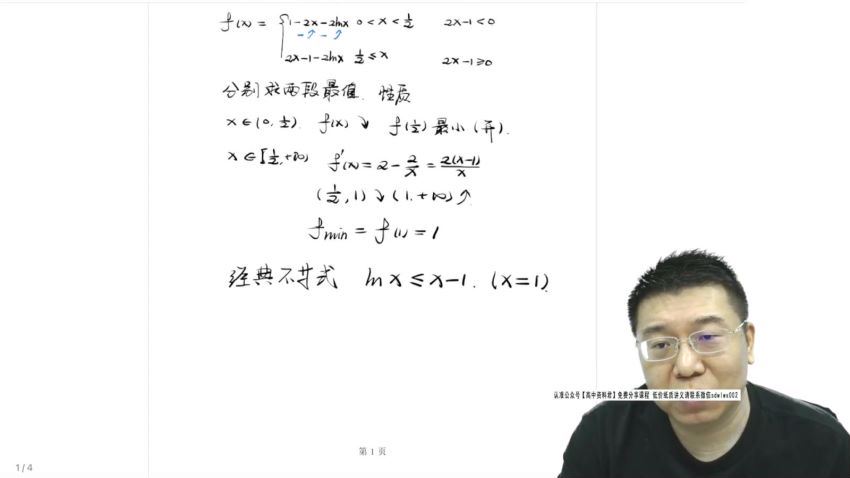 f(x) = { 1-2x-2lnx 0<x<1/2 2x-1<0
-↗-↗
2x-1-2lnx 1/2≤x 2x-1≥0
分别求两段最值、性质
x∈(0,1/2). f(x)↘ f(1/2)最小(开).
x∈[1/2,+∞) f'(x)=2-2/x=2(x-1)/x
(1/2,1)↘(1,+∞)↗
fmin=f(1)=1
经典不等式 lnx≤x-1. (x=1)
认准公众号【高中资料君】免费分享课程 低价纸质讲义请联系微信sdelex002
第 1 页
1/4